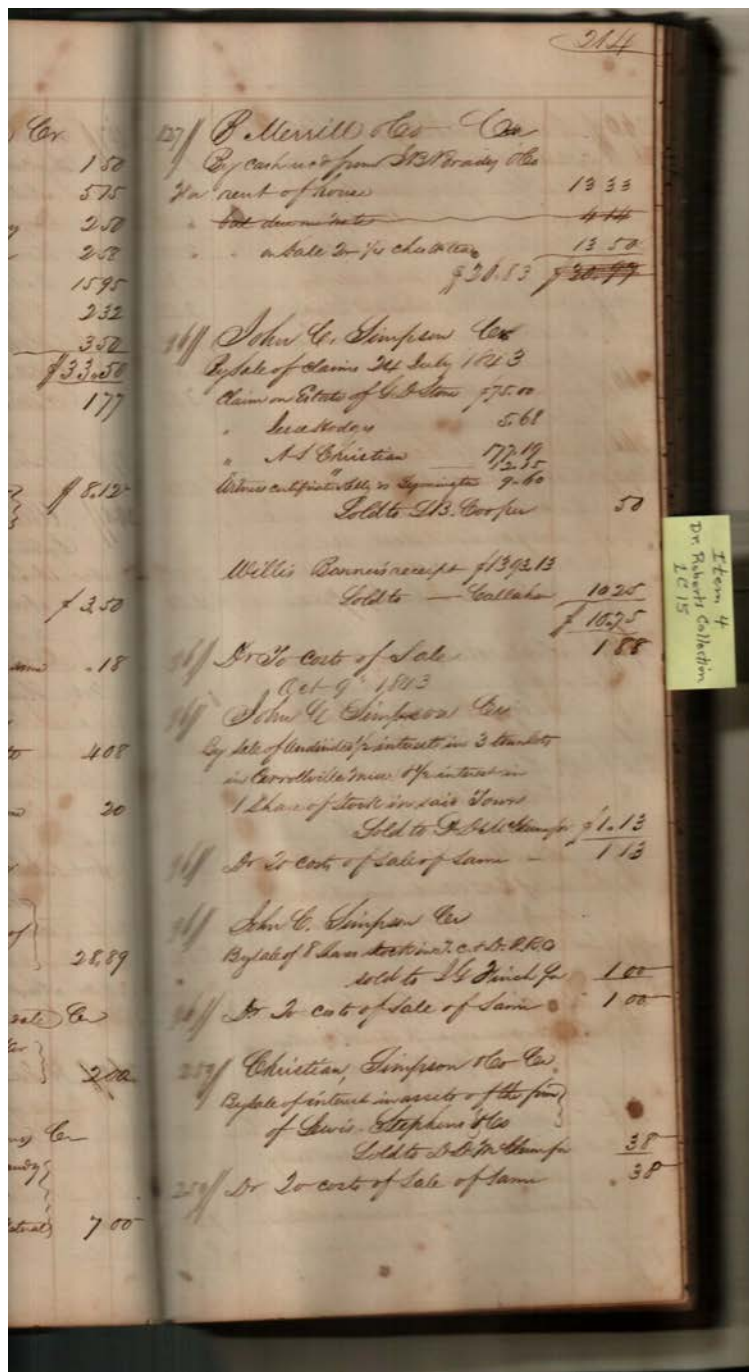 214
Cr
150
575
250
258
1595
232
350
$33.50
177
$8.12
$3.50
.18
408
20
28.89
Cr
200
Cr
7 00
137 B Merrill & Co Cr
By cash rec'd from & Co
rent of house 13 33
bal due on note 4 14
on Sale 13 50
$26.83 $30.97
96 John C. Simpson Cr
By Sale of claims 24 July 1843
Claim on Estate of G. D. Stone $75.00
" Jesse Hodges 5.68
" A S Christian 177.19
12.35
Witness certificate vs 9.60
Sold to L B. Cooper 50
Willis receipt $1393.13
Sold to — Callahan 10 25
$10.75
96 Dr To cost of Sale 1 88
Oct 9th 1843
96 John C Simpson Cr
By Sale of undivided 1/2 interest in 3
in Carrollville Miss & 1/2 interest in
1 Share of Stock in said Town
Sold to $1.13
96 Dr To costs of Sale of Same — 1 13
96 John C. Simpson Cr
By Sale of 8 Shares Stock in
sold to J G Finch 1 00
96 Dr To costs of Sale of Same 1 00
259 Christian, Simpson & Co Cr
By Sale of interest in assets of the firm
of Lewis Stephens & Co
Sold to 38
259 Dr To costs of Sale of Same 38
Item 4
Dr. Roberts Collection
2C15